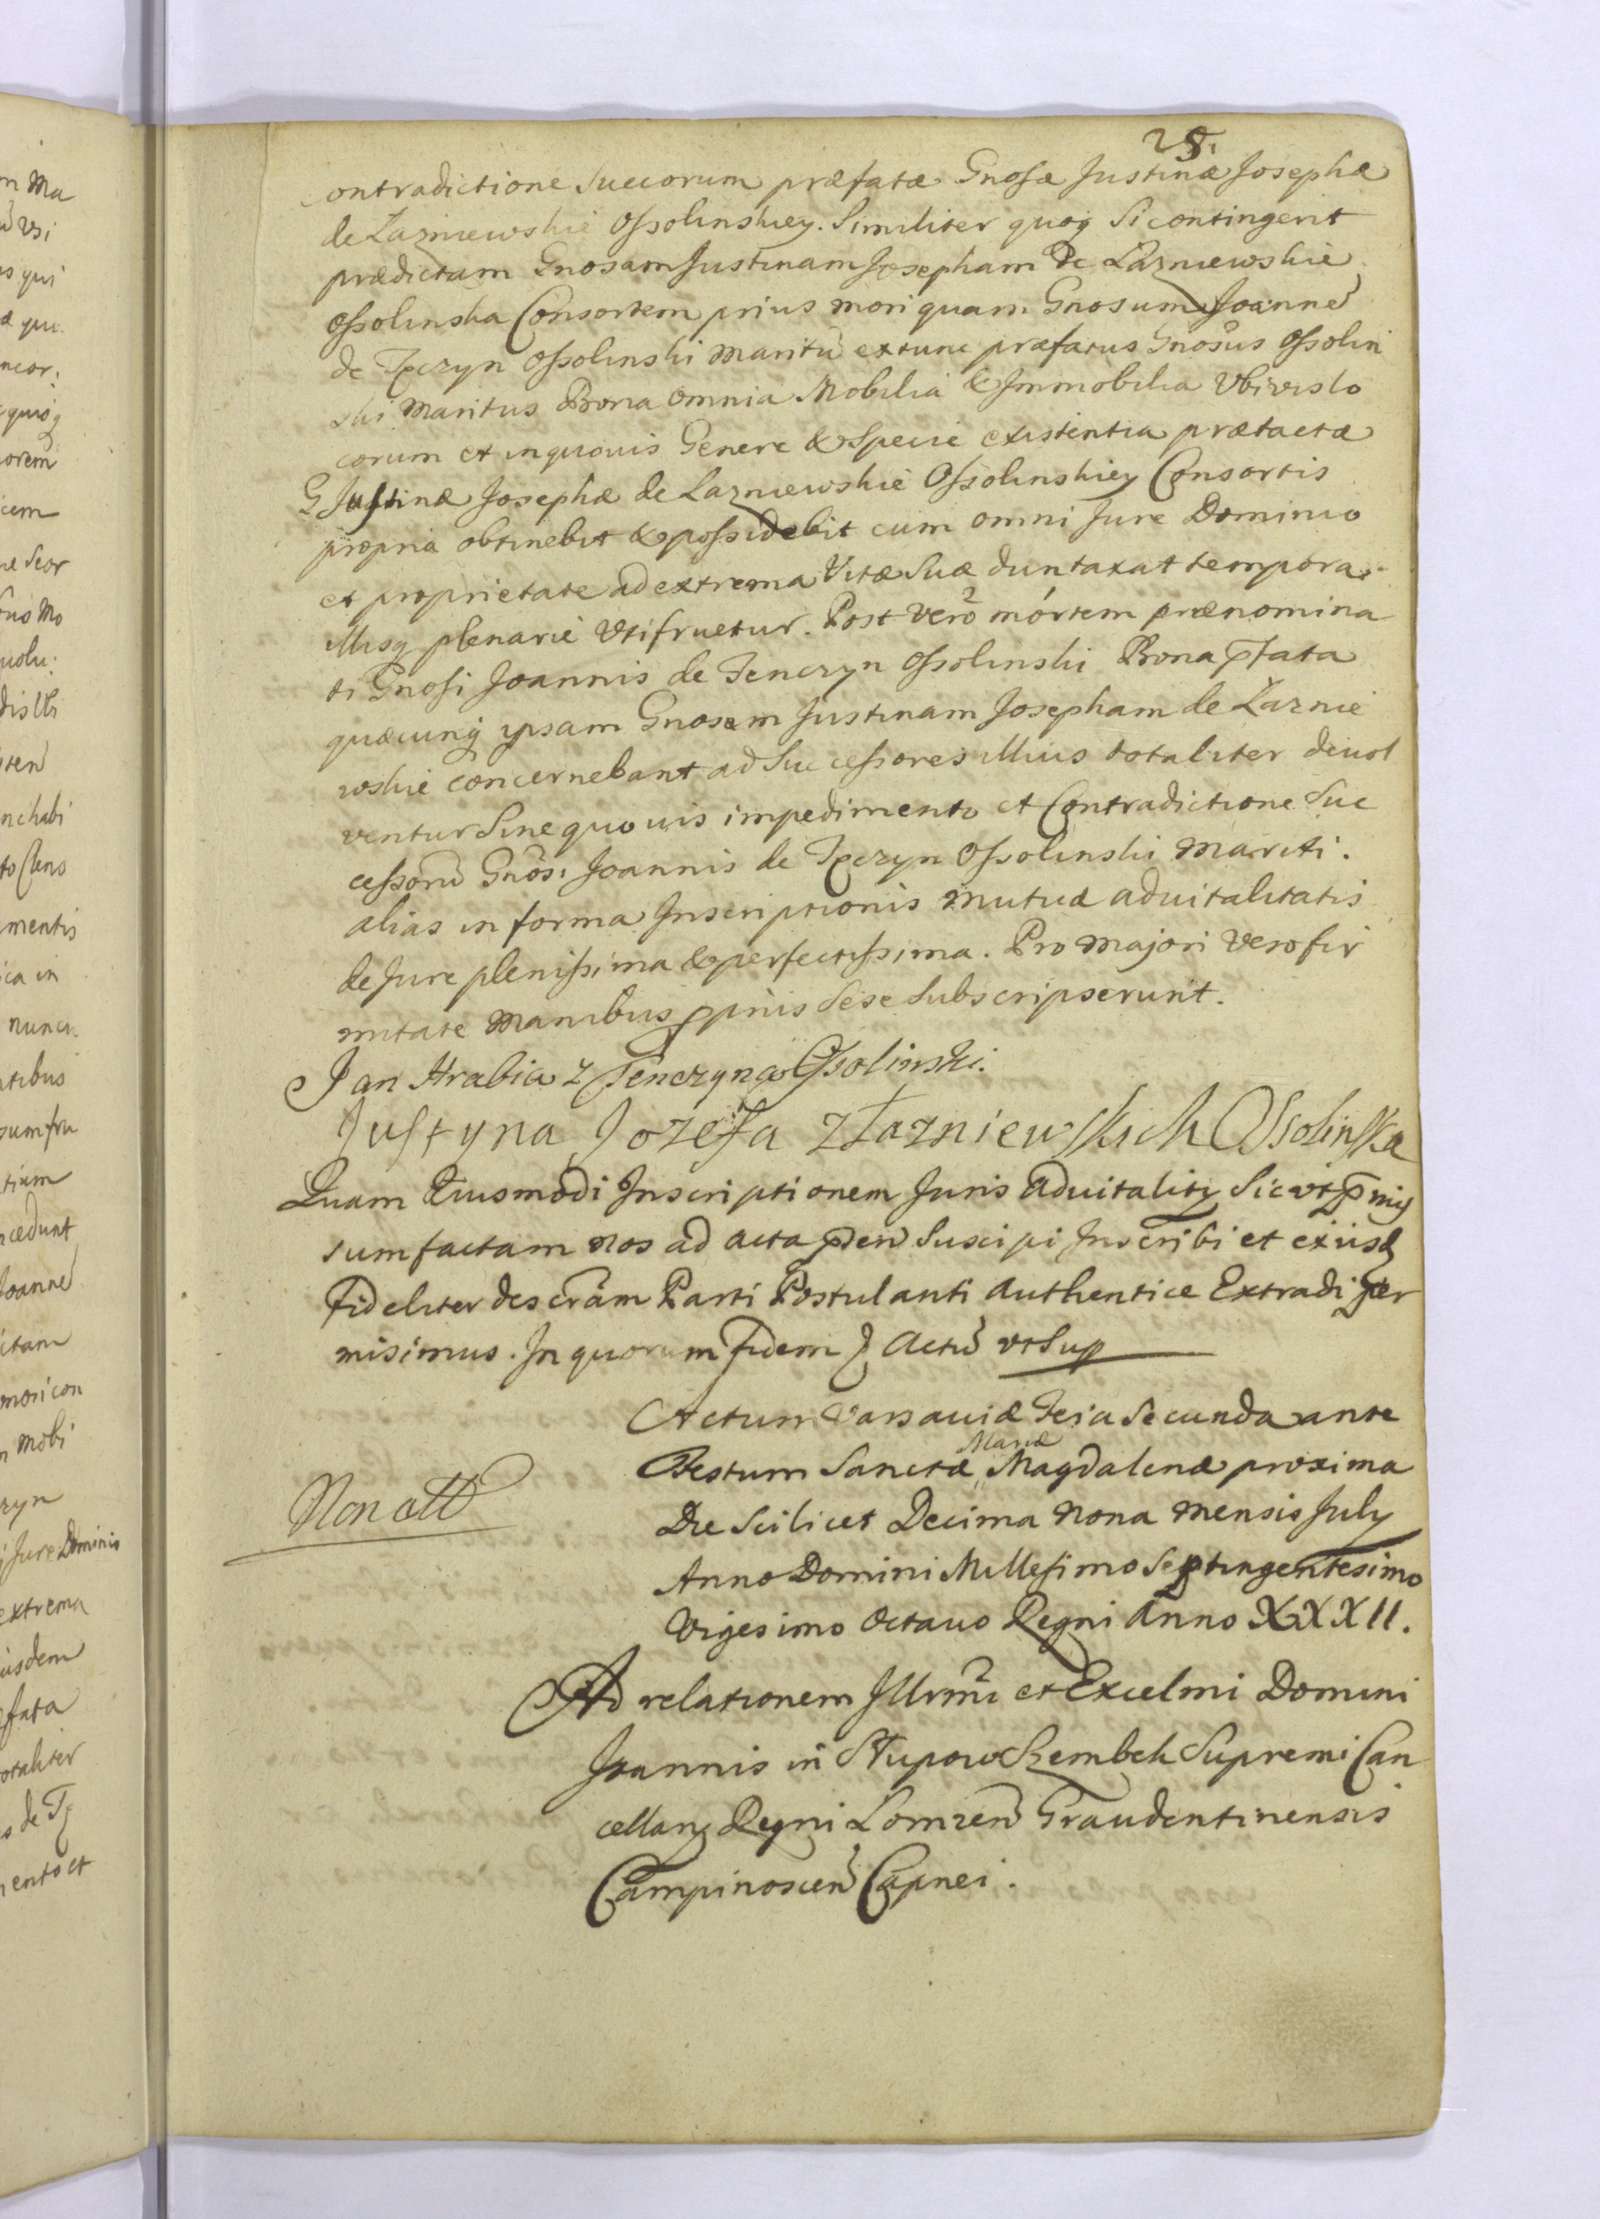 25.
ontradictione Succorum præfatæ Gnosæ Justinæ Josephæ
de Łazniewskie Ossolinskiey. Similiter quoq Si contingerit
prædictam Gnosam Justinam Josepham De Łazniewskie
Ossolinska Consortem prius mori quam Gnosum Joannē
de Tęczyn Ossolinski Maritū extunc præfatus Gnosus Ossolin
ski Maritus Bona omnia Mobilia & Immobilia Ubivislo
corum et in quovis Genere & Specie existentia prætactæ
G Justinæ Josephæ de Łazniewskie Ossolinskiey Consortis
propria obtinebit & possidebit cum omni Jure Dominio
et proprietate ad extrema Vitæ Suæ duntaxat tempora
Illisq plenarie Utifruetur. Post vero mortem prænomina
ti Gnosi Joannis de Tenczyn Ossolinski Bona pfata
quæcunq ipsam Gnosam Justinam Josepham de Łaznie
wskie concernebant ad Successores illius totaliter devol
ventur Sine quovis impedimento et Contradictione Suc
cessorū Gnosi Joannis de Tęczyn Ossolinski Mariti.
alias in forma Inscriptionis Mutuæ advitalitatis
de Jure plenissima & perfectissima. Pro Majori Vero fir
mitate Manibus ppriis Sese Subscripserunt.
Jan Hrabia z Tenczyna Ossolinski.
Justyna Jozefa z Łazniewskich Ossolinska
Quam Eiusmodi Inscriptionem Juris Advitalitis Sicut pmis
sum factam Nos ad Acta pden Suscipi Inscribi et exiisd
fideliter descram Parti Postulanti Authentice Extradi per
misimus. In quorum fidem Actū ut Sup
Actum Varsaviæ Feria Secunda ante
Festum Sanctæ Mariæ Magdalenæ proxima
Die Scilicet Decima Nona Mensis July
Anno Domini Millesimo Septingentesimo
Vigesimo Octavo Regni Anno XXXII.
Non att
Ad relationem Illrmi et Excelmi Domini
Joannis in Słupow Szembek Supremi Can
cellary Regni Lomzen Graudentinensis
Campinoscen Capnei.